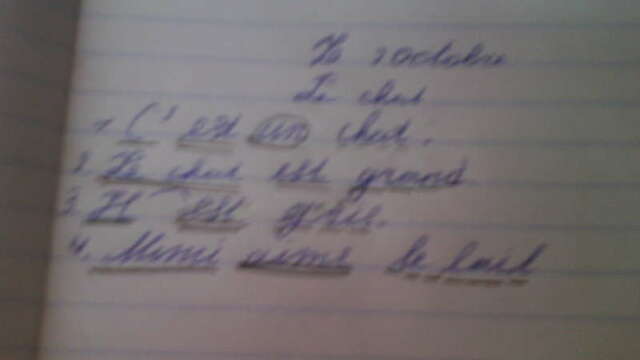 Le 2 octobre
Le chat
1. C' est un chat.
2. Le chat est grand
3. Il est gris.
4. Mimi aime le lait